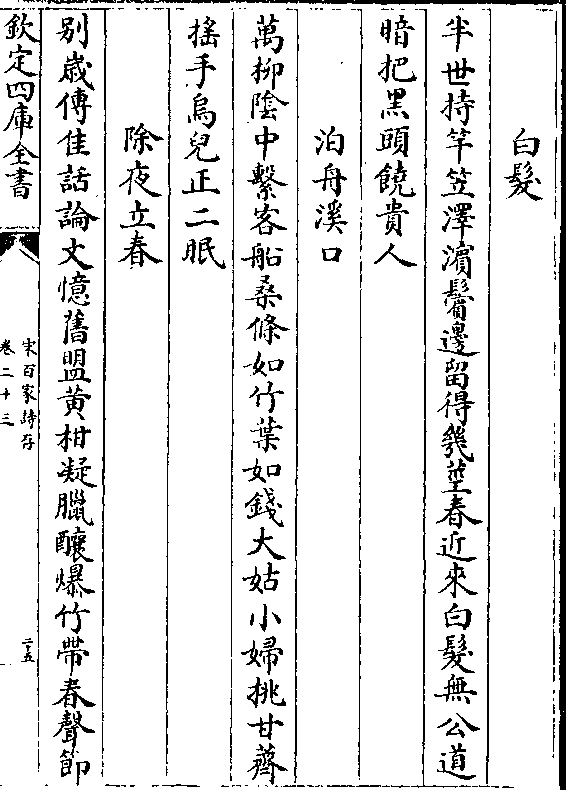 白髮
半世持竿笠澤濵鬢邊留得幾莖春近來白髮無公道
暗把黑頭饒貴人
泊舟溪口
萬柳陰中繫客船桑條如竹葉如錢大姑小婦挑甘薺
揺手烏兒正二眠
除夜立春
别歲傳佳話論文憶舊盟黄柑凝臘釀爆竹帶春聲節
欽定四庫全書
宋百家詩存
卷二十三
二五